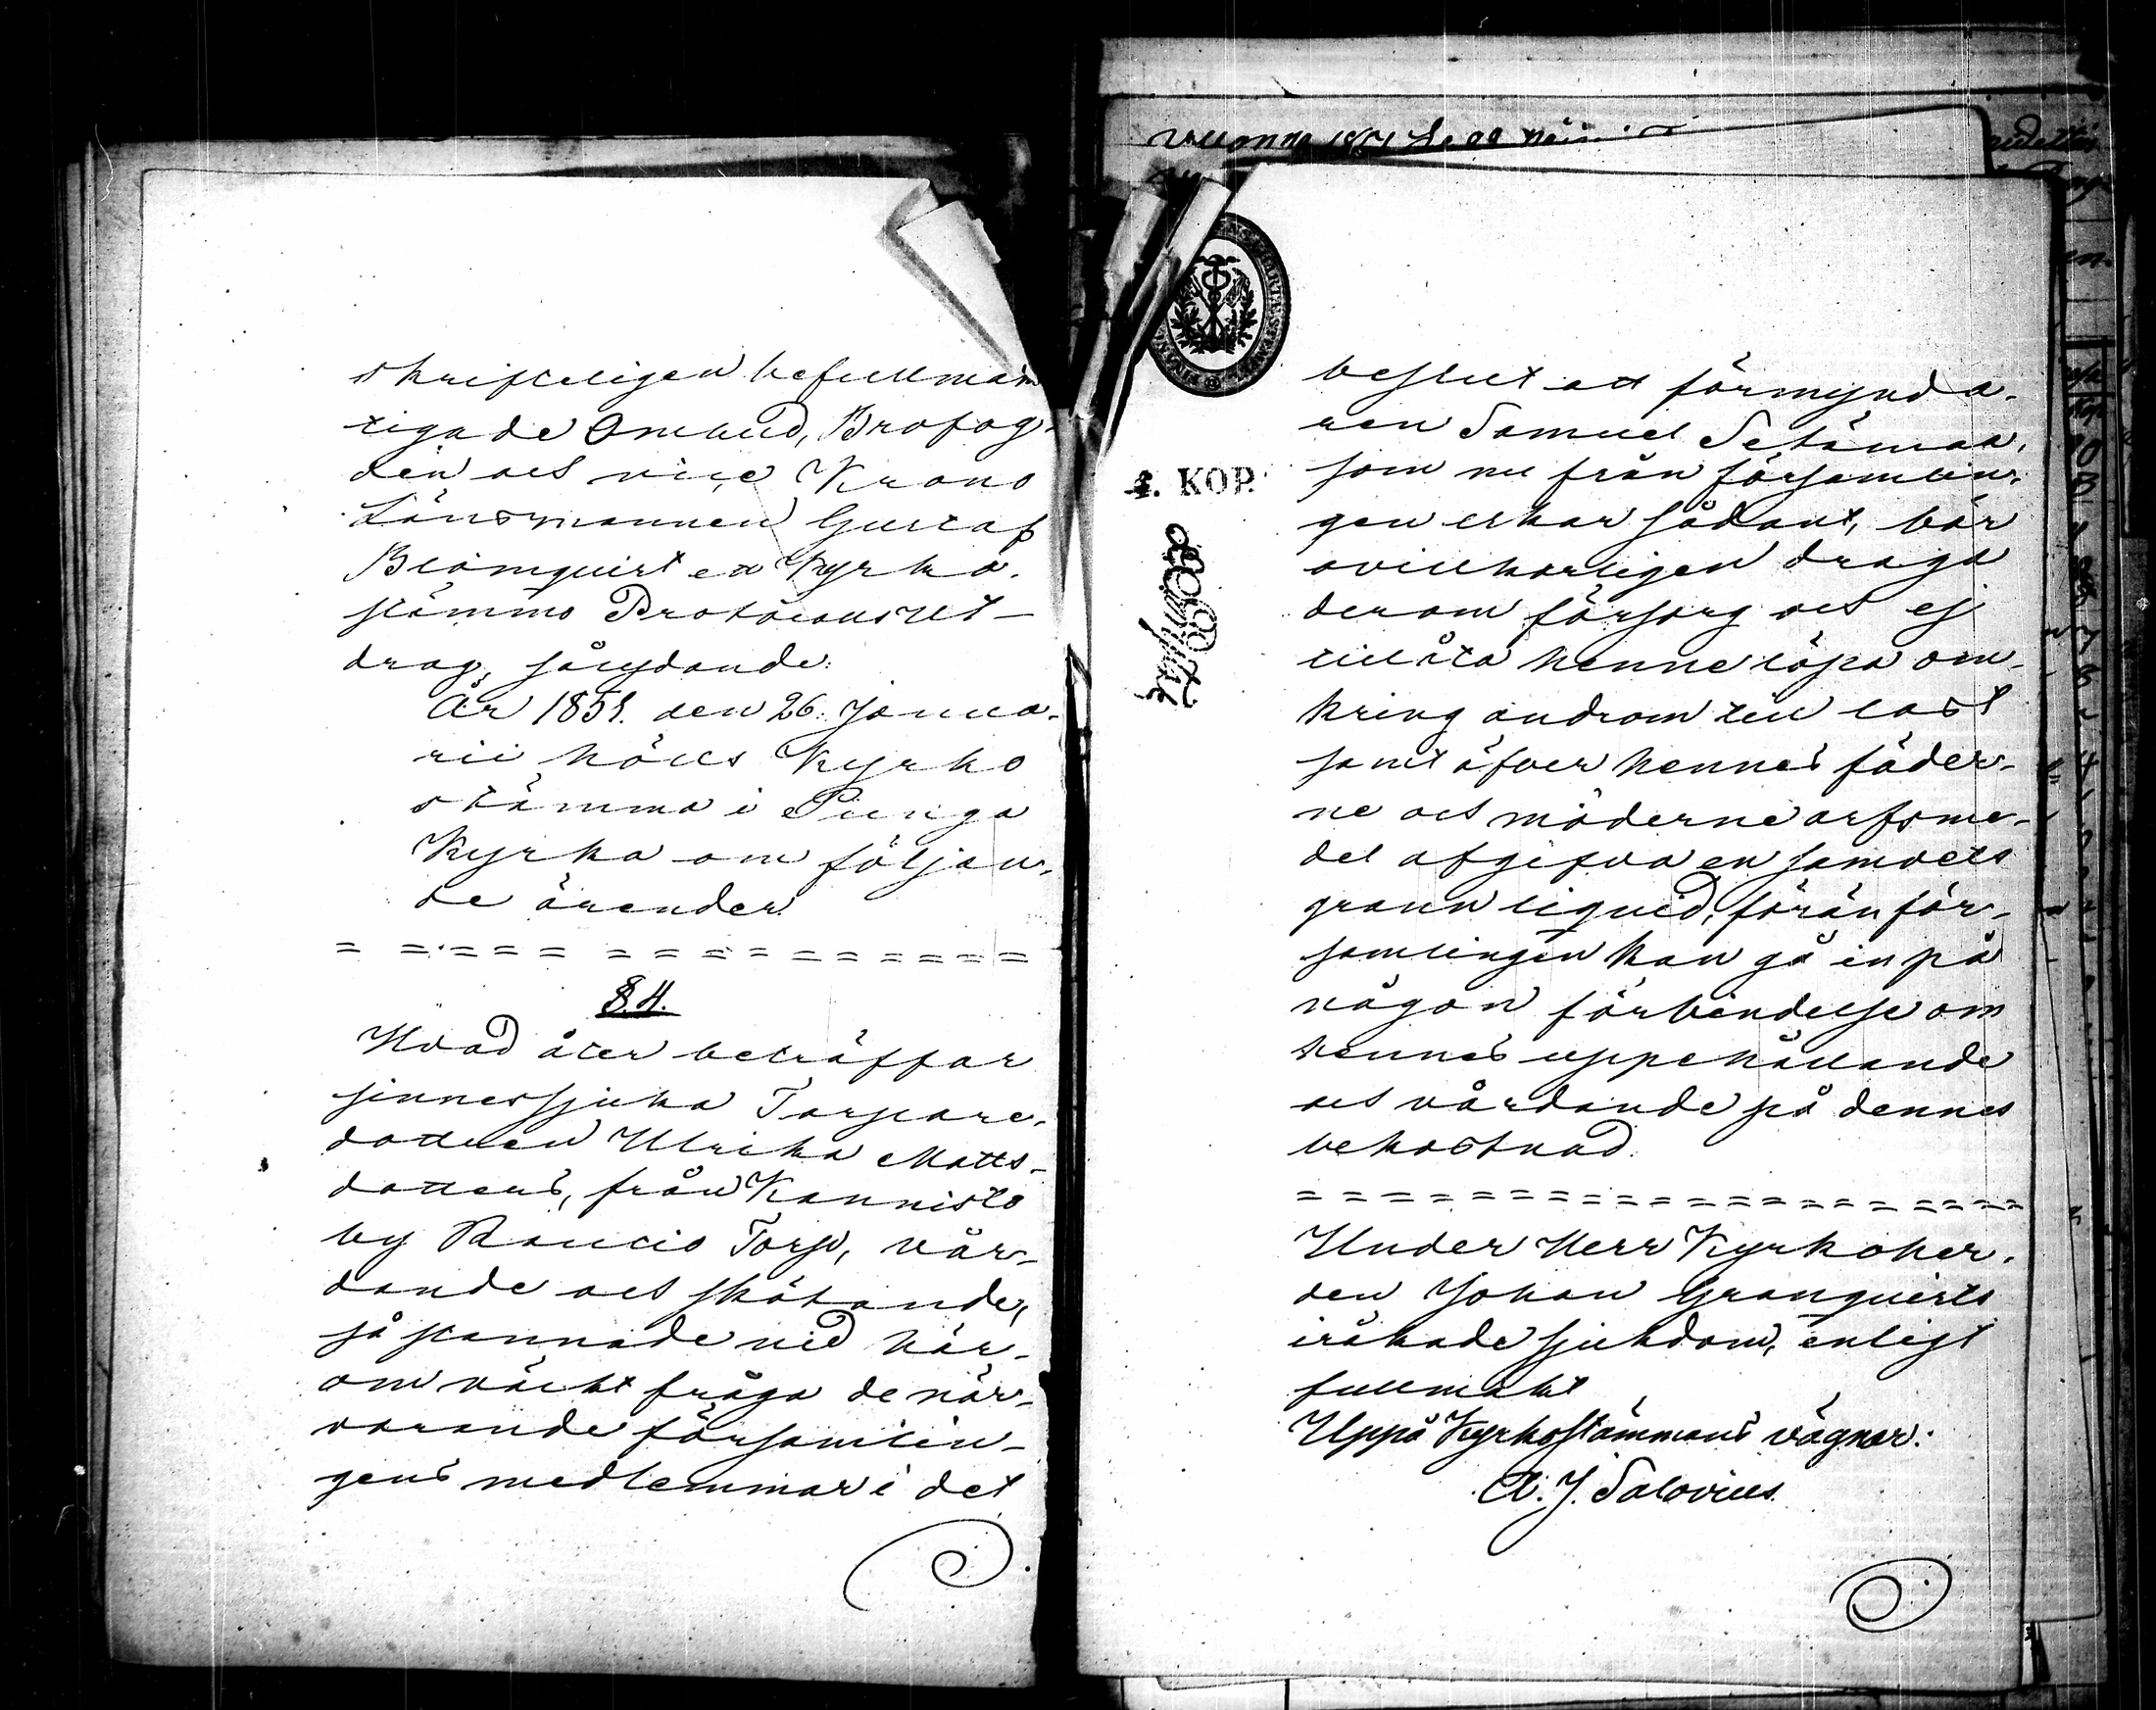 skrifteligen befullmäk
tigade Ombud, Brofog-
den och vice Krono
Länsmannen Gustaf
Blomquist ett Kyrko-
stämmo Protocollsut-
drag, sålydande:
År 1851. den 26. Janua-
rii hölls Kyrko
stämma i Pung
Kyrka om följan-
de ärender.
= = = = = = = = = = = = = = =
§. 4.
Hvad åter beträffar
sinnessjuka Torpare-
dottren Ulrika Matts-
dotters, från Kannisto
by Torp, vår-
dande och skötande,
så stannade vid här-
om väckt fråga de när-
varande församlin-
gens medlemmar i det
4. KOP.
beslut att förmynda-
ren Samuel
som nu från församlin-
gen erhar sådant, bör
ovillkorligen draga
derom försorg och ej
tillåta henne löpa om-
kring androm till last
samt öfver hennes fäder-
ne och möderne arfsme-
del afgifva en samvets
grann liquid, förän för-
samlingen kan gå in på
någon förbindelse om
hennes uppehållande
och vårdande på dennes
bekostnad.
= = = = = = = = = = = = = = = = = = = =
Under Herr Kyrkoher-
den Johan Granquists
iråkade sjukdom, enligt
fullmakt
Uppå Kyrkostämmans vägnar:
A. J. Salovius.